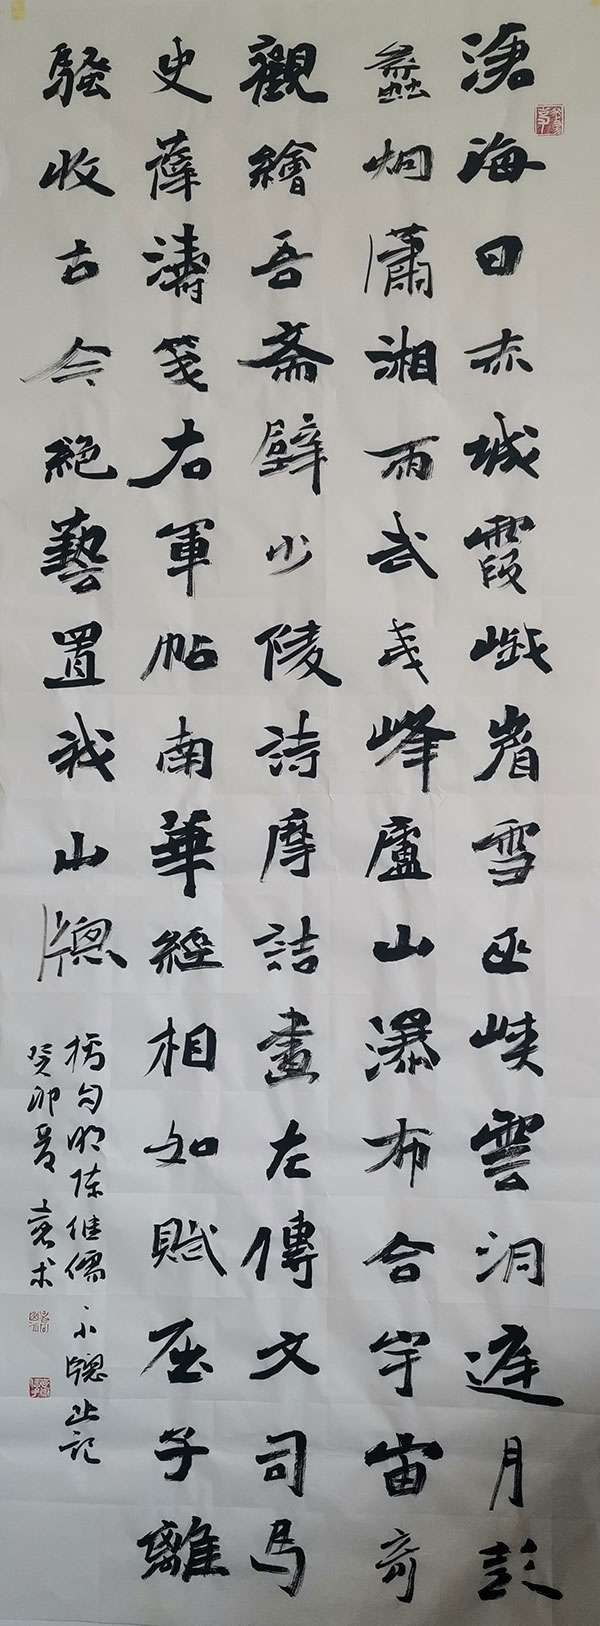 滄海日赤城霞峨眉雪巫峽雲洞庭月彭
蠡烟瀟湘雨武夷峰廬山瀑布合宇宙奇
觀繪吾齋壁少陵詩摩詰畫左傳文司馬
史薛濤箋右軍帖南華經相如賦屈子離
騷收古今絕藝置我山牕
摘句明陳継儒小牕記
癸卯夏